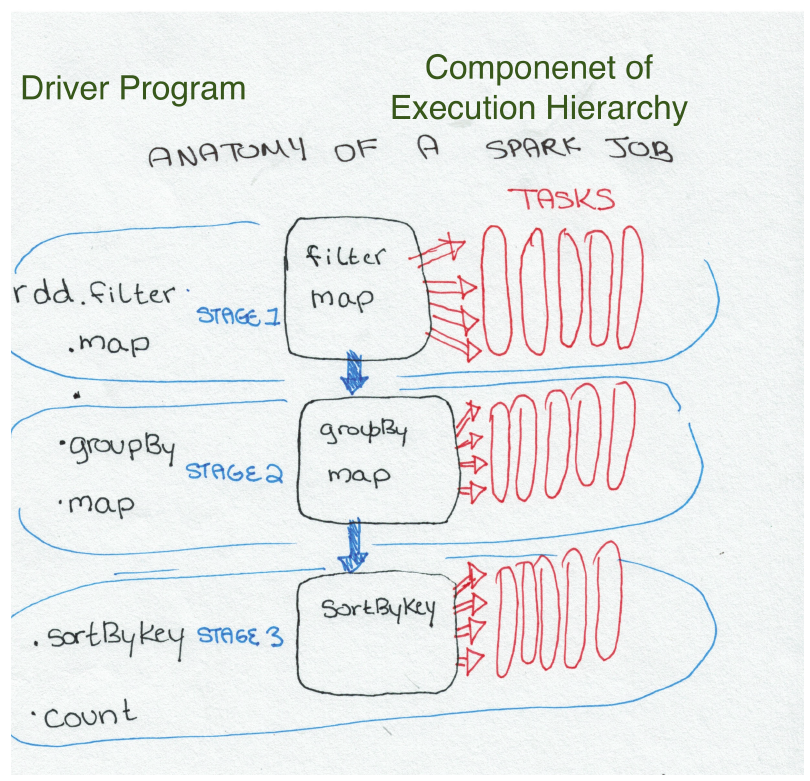 Driver Program
Componenet of
Execution Hierarchy
ANATOMY OF A SPARK JOB
TASKS
rdd.filter
.map
STAGE 1
filter
map
.groupBy
.map
STAGE 2
groupBy
map
.sortByKey
.count
STAGE 3
sortByKey